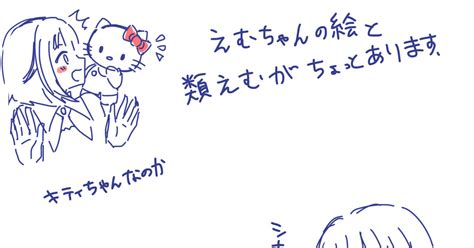 えむちゃんの絵と
類えむがちょっとあります、
キティちゃんなのか